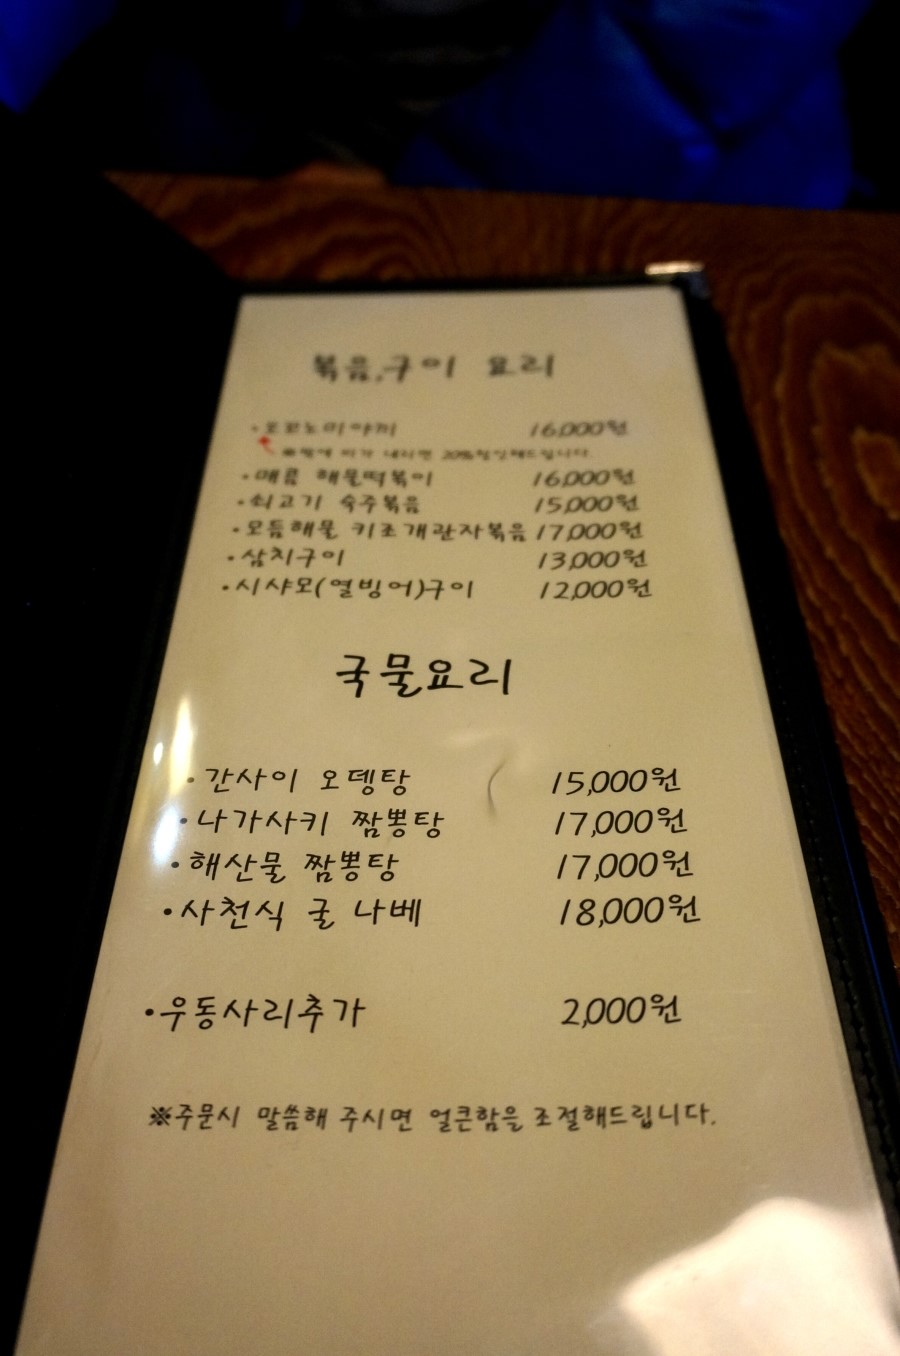 볶음,구이 요리
·오꼬노미야끼 16,000원
※밖에 비가 내리면 20%할인해드립니다.
·매콤 해물떡볶이 16,000원
·쇠고기 숙주볶음 15,000원
·모듬해물 키조개관자볶음 17,000원
·삼치구이 13,000원
·시샤모(열빙어)구이 12,000원
국물요리
·간사이 오뎅탕 15,000원
·나가사키 짬뽕탕 17,000원
·해산물 짬뽕탕 17,000원
·사천식 굴 나베 18,000원
·우동사리추가 2,000원
※주문시 말씀해 주시면 얼큰함을 조절해드립니다.